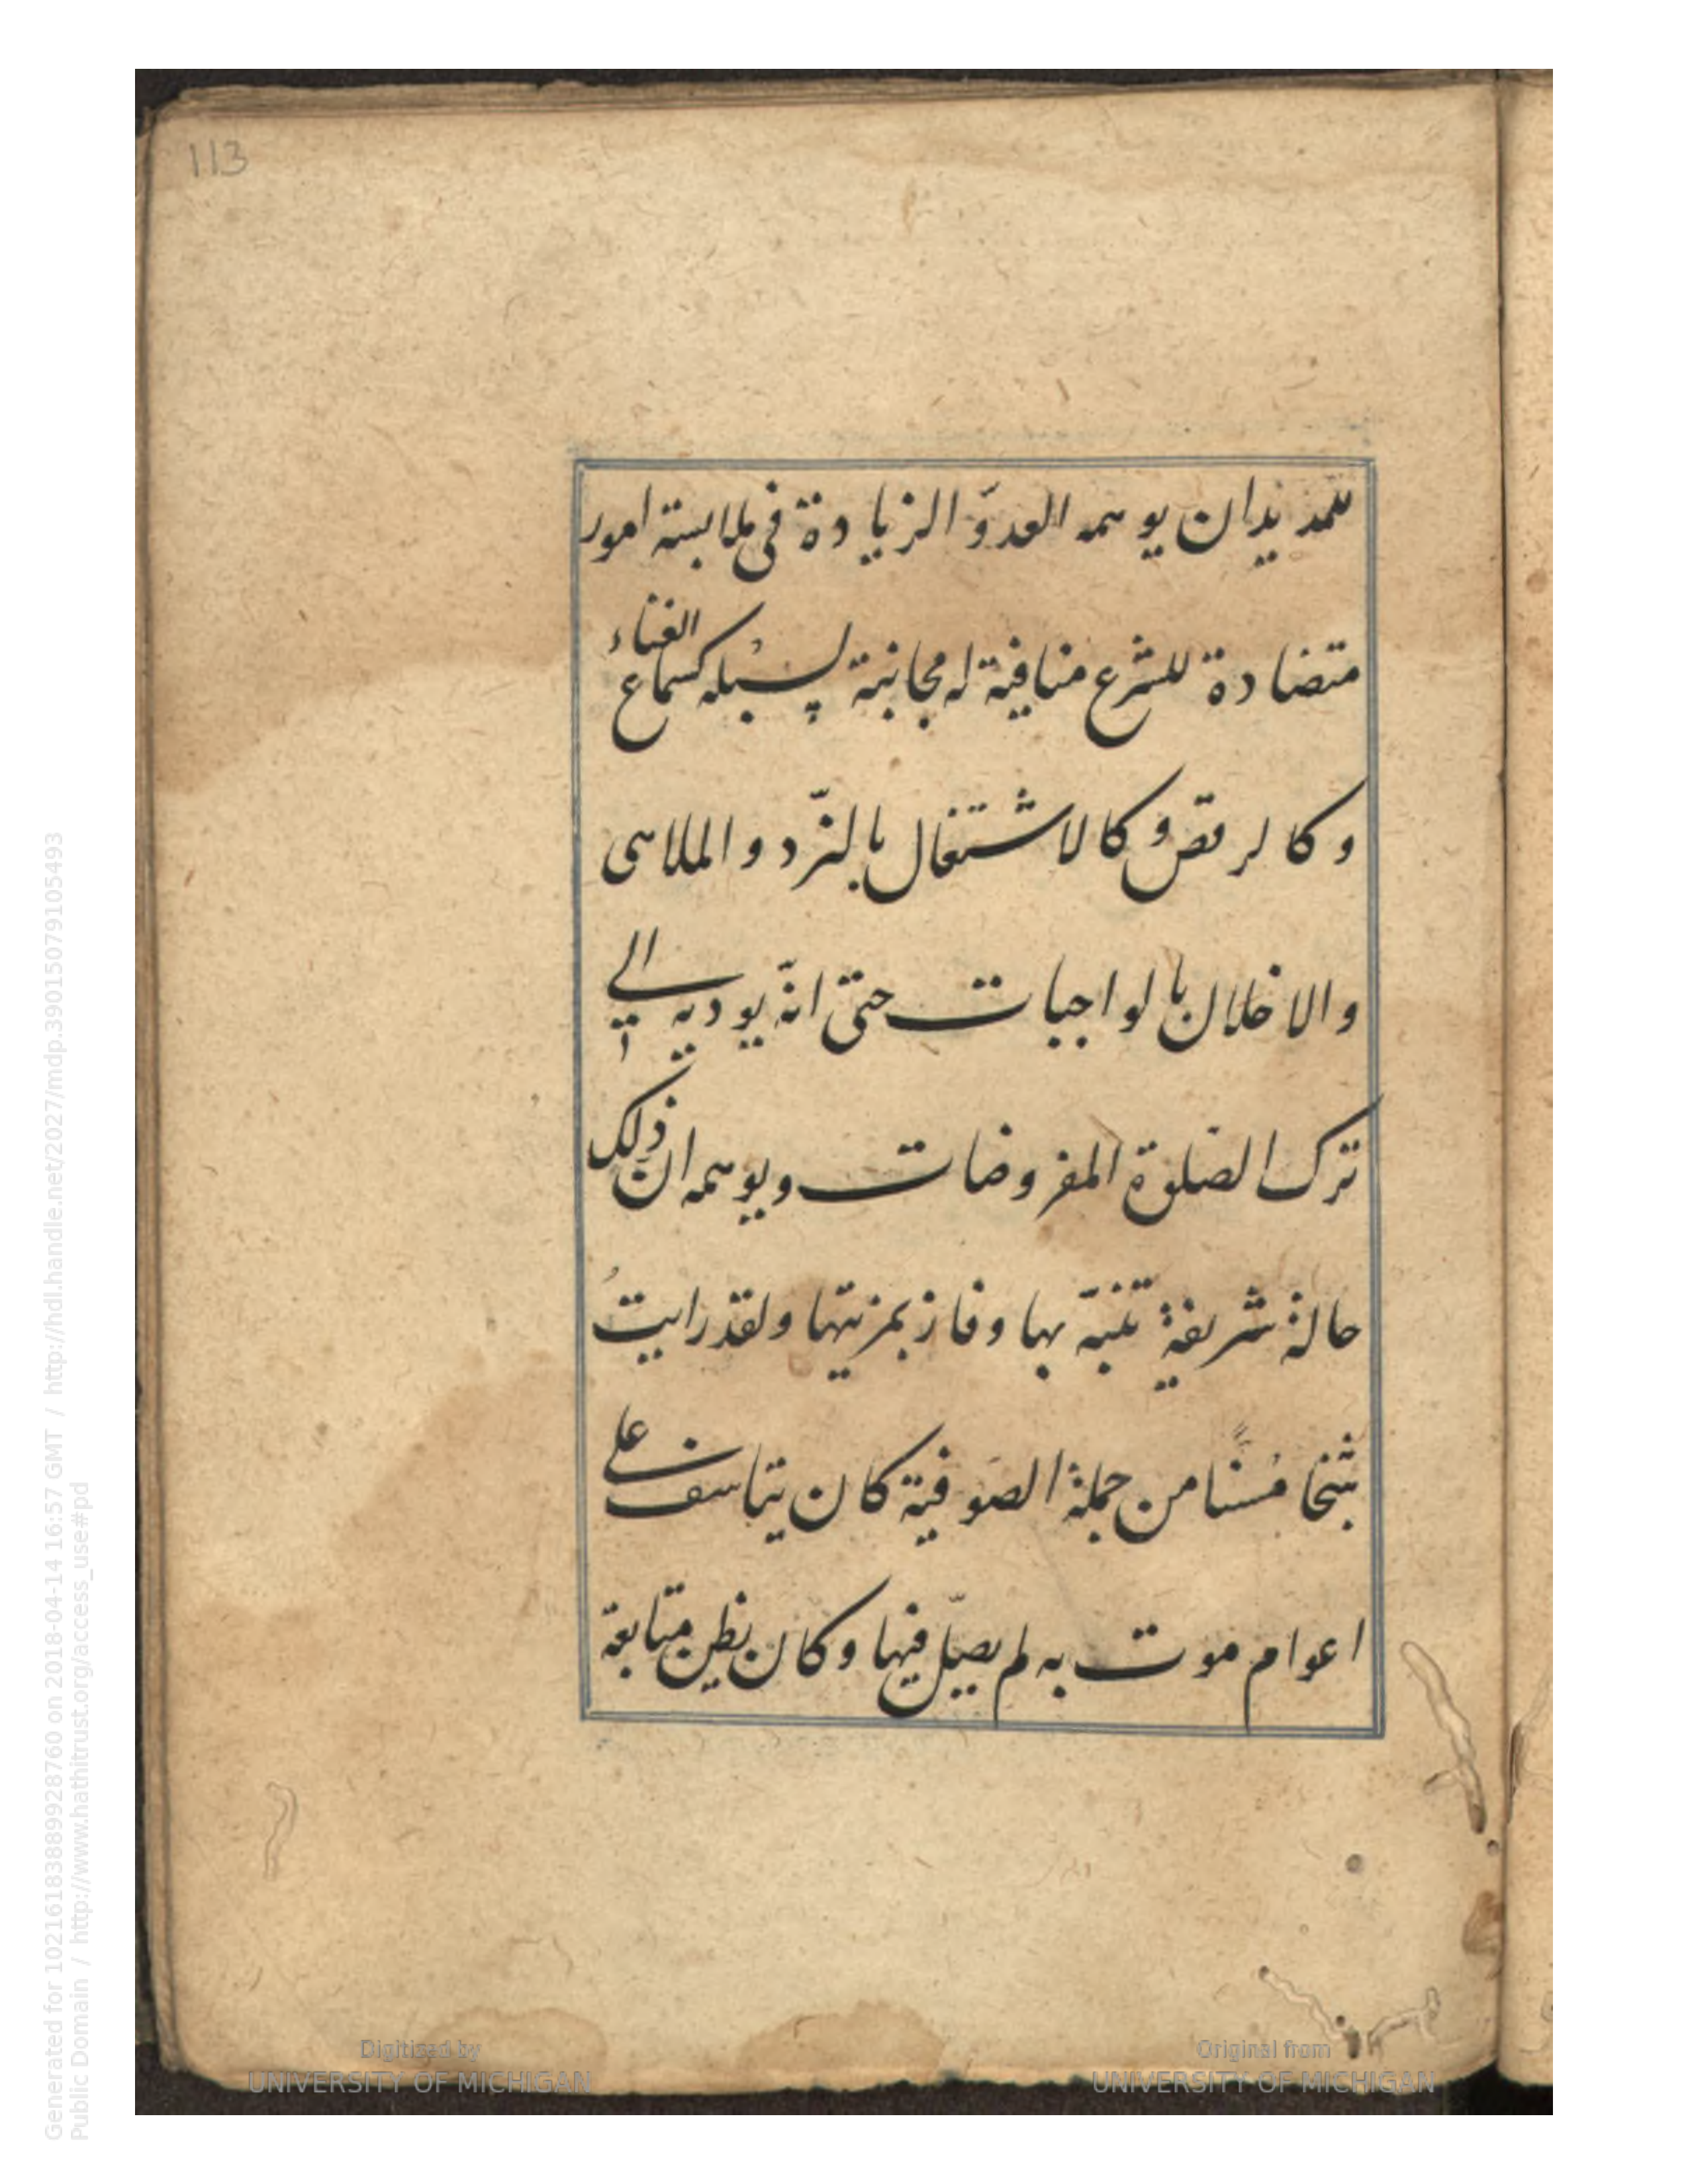 113
للمد يدان يوهمه العدوّ الزيادة في ملابسته امور
متضادة للشرع منافية له مجانبة لسبله كسماع الغناء
وكالرقص وكالاشتغال بالنّرد والملاهى
والاخلال بالواجبات حتى انّه يوديه الي
ترك الصلوة المفروضات ويوهمه ان ذلك
حالة شريفة تنبّه بها وفاز بمزيتها ولقد رايتُ
شيخا مُسنّا من جملة الصوفية كان يتاسف على
اعوام موت به لم يصلّ فيها وكان يظن متابعة
Digitized by
UNIVERSITY OF MICHIGAN
Original from
UNIVERSITY OF MICHIGAN
Generated for 10216183889928760 on 2018-04-14 16:57 GMT / http://hdl.handle.net/2027/mdp.39015079105493
Public Domain / http://www.hathitrust.org/access_use#pd